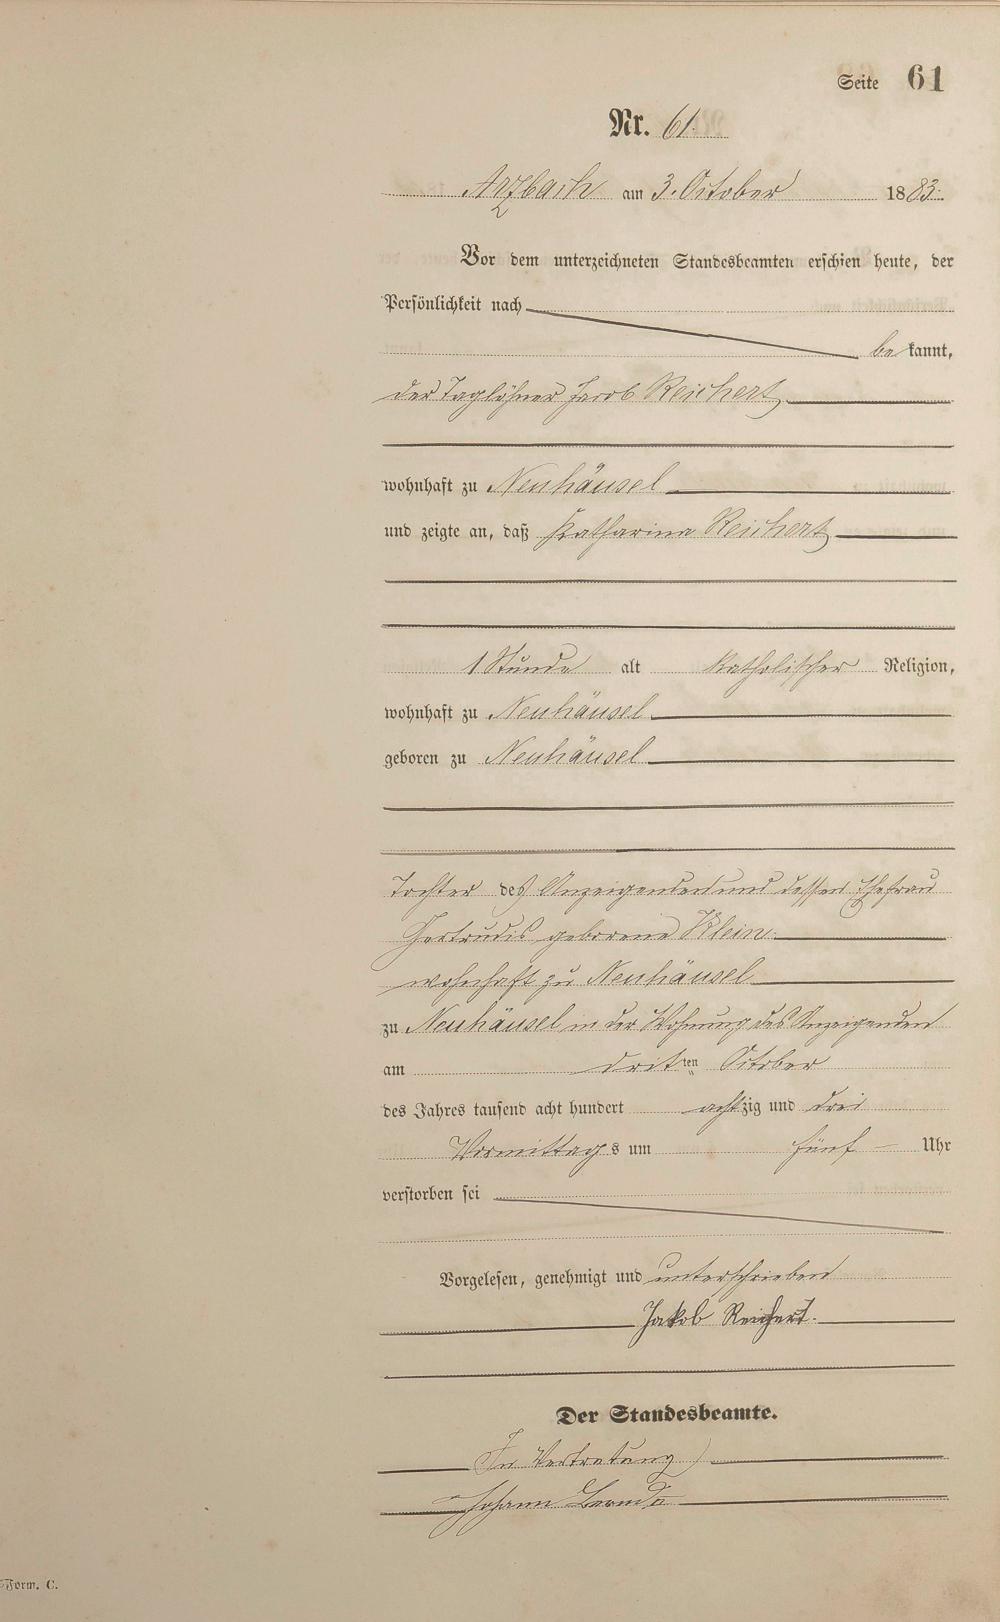 Seite 61
Nr. 61.
Arzbach am 3. October 1883.
Vor dem unterzeichneten Standesbeamten erschien heute, der
Persönlichkeit nach
be kannt,
der Taglöhner Jacob Reichert
wohnhaft zu Neuhäusel
und zeigte an, daß Katharina Reichert
1 Stunde alt katholischer Religion,
wohnhaft zu Neuhäusel
geboren zu Neuhäusel
Tochter des Anzeigenden und dessen Ehefrau
Gertrudis geborene Klein
wohnhaft zu Neuhäusel
zu Neuhäusel in der Wohnung des Anzeigenden
am dritten October
des Jahres tausend acht hundert achtzig und drei
Vormittags um fünf Uhr
verstorben sei
Vorgelesen, genehmigt und unterschrieben
Jakob Reichert.
Der Standesbeamte.
In Vertretung
Johann
Form. C.